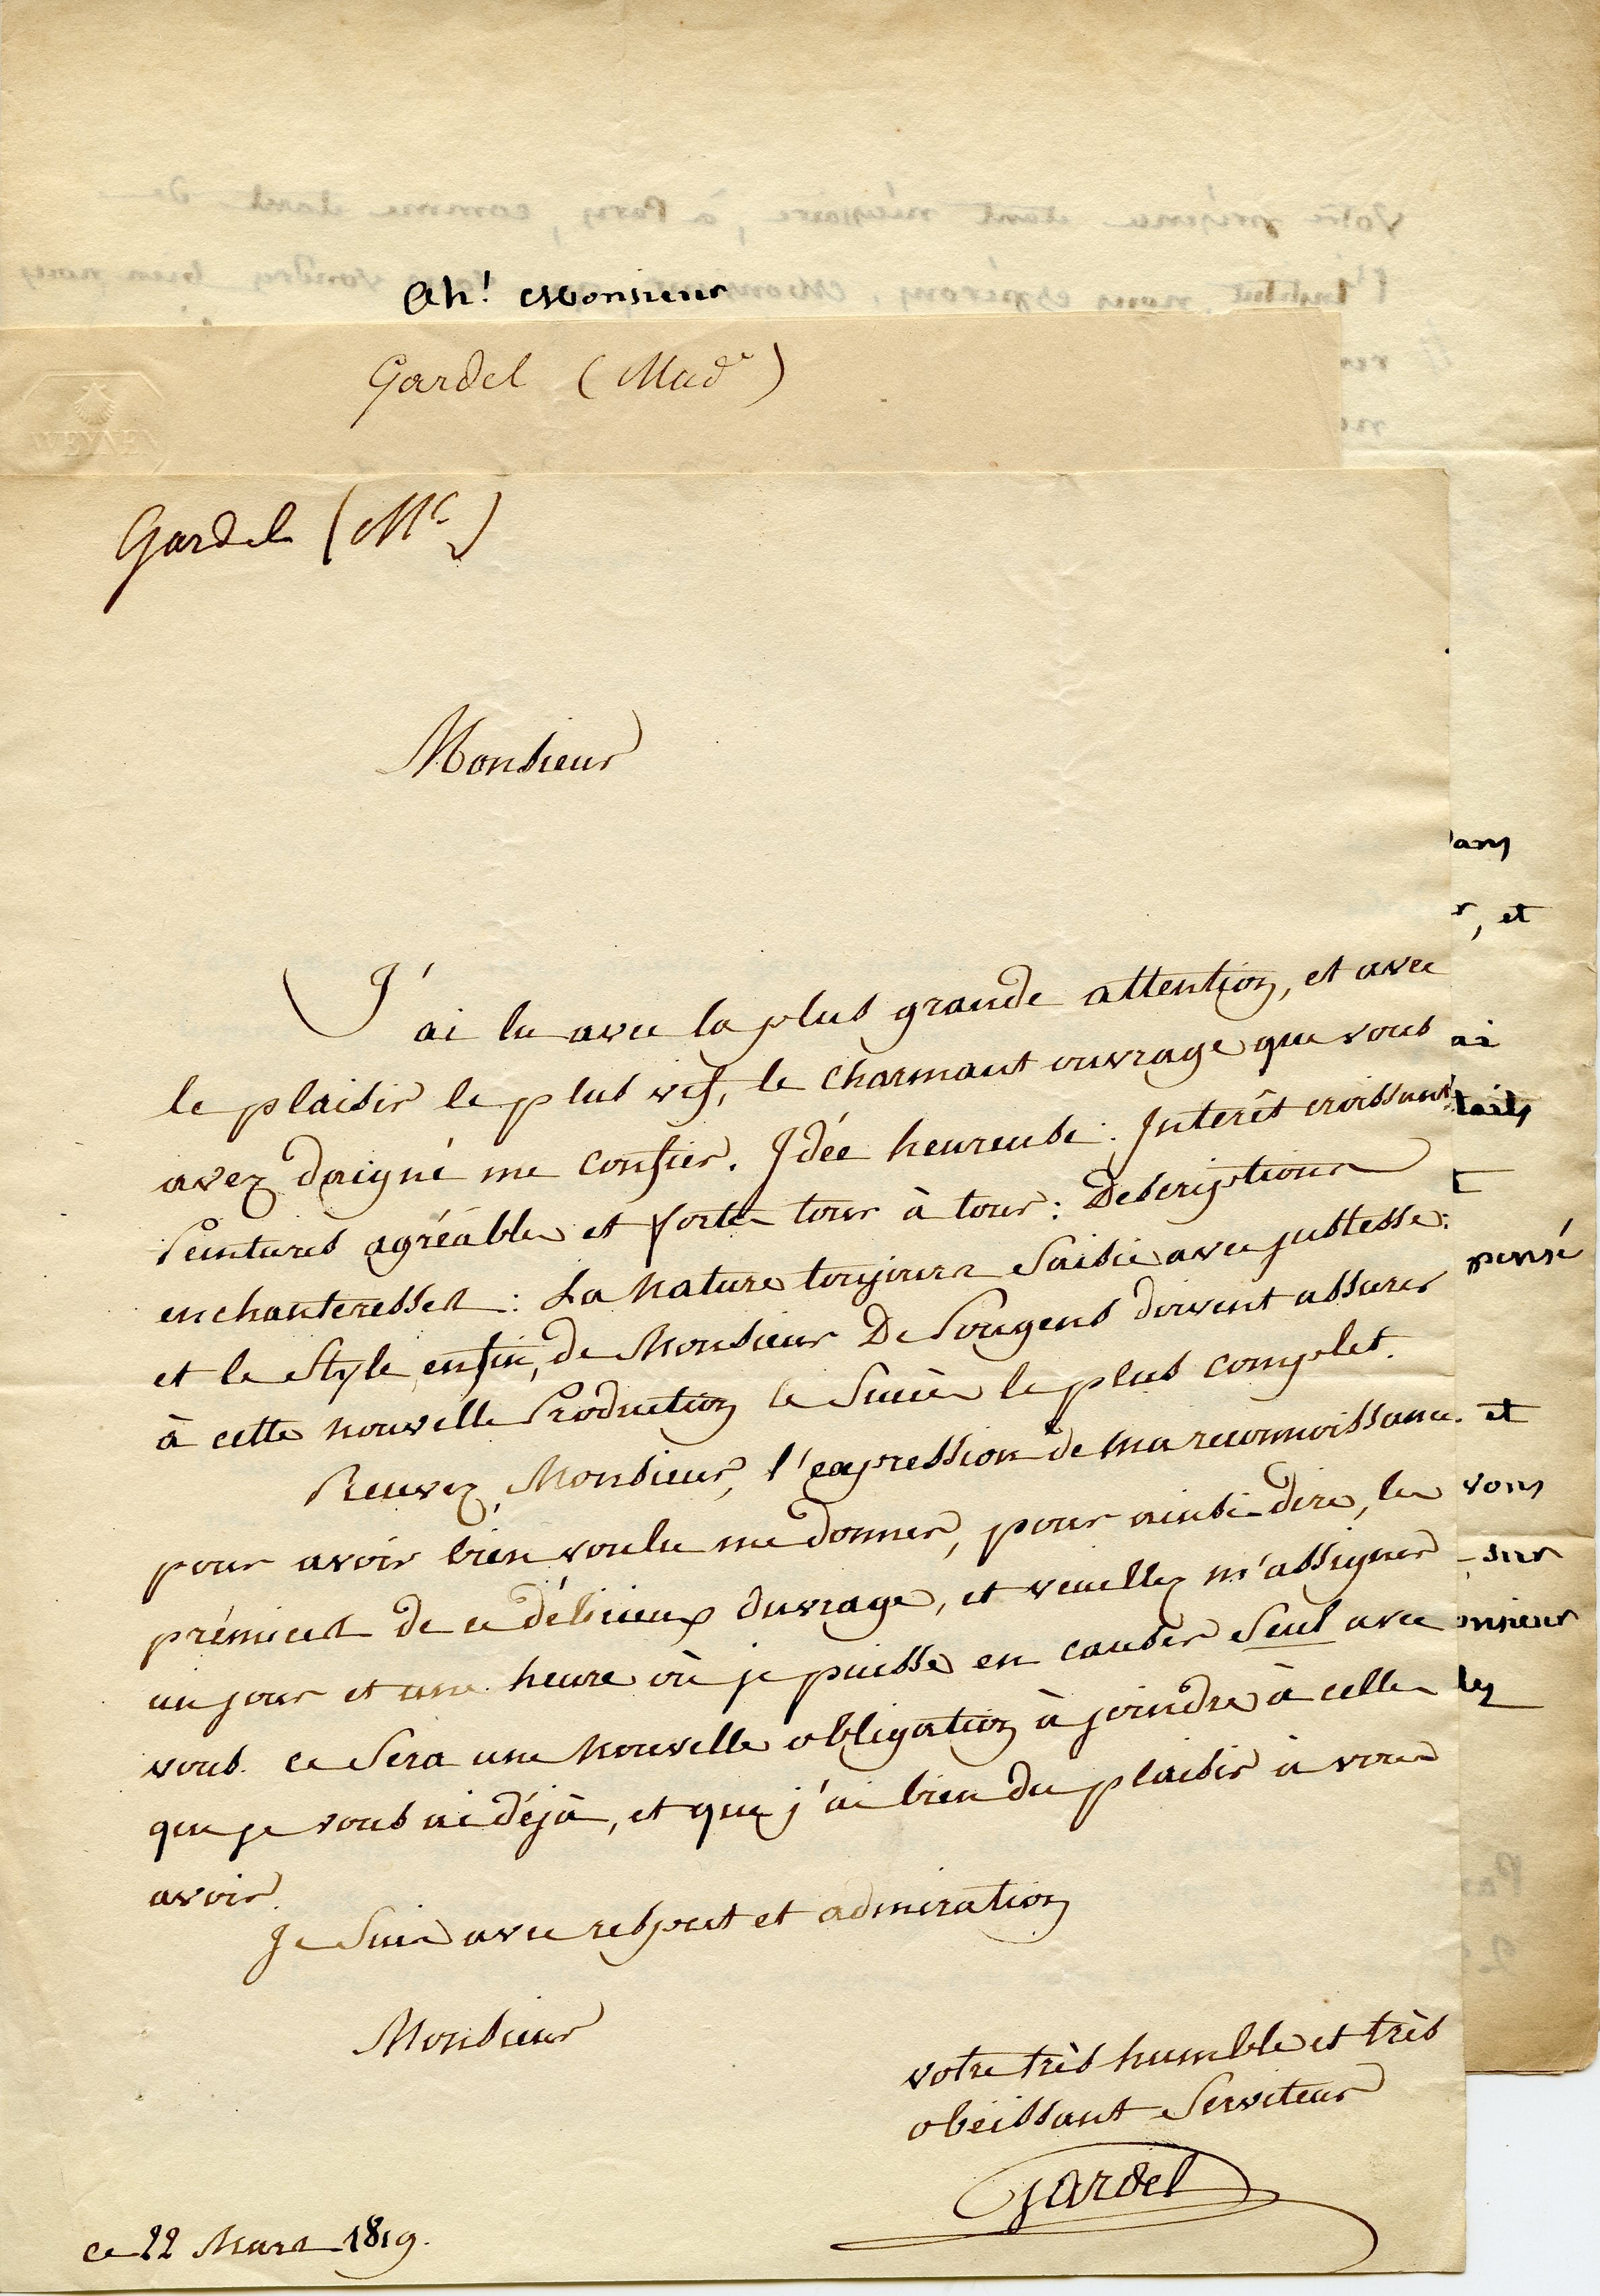 Ah! Monsieur
Gardel (Mad.e)
WEYNEN
Gardel (Mr.)
Monsieur
J'ai lu avec la plus grande attention, et avec
le plaisir le plus vif, le charmant ouvrage que vous
avez daigné me confier. Idée heureuse: Interêt croissant:
Peintures agréables et fortes tour à tour: Descriptions
enchanteresses: La Nature toujours Saisie avec justesse:
et le Style, enfin, de Monsieur De Pougens doivent assurer
à cette nouvelle Production le Succès le plus complet.
Recevez, Monsieur, l'expression de ma reconnoissance
pour avoir bien voulu me donner, pour ainsi dire, les
prémices de ce délicieux Ouvrage, et veuillez m'assigner
un jour et une heure où je puisse en causer Seul avec
vous. ce Sera une nouvelle obligation à joindre à celles
que je vous ai déjà, et que j'ai bien du plaisir à vous
avoir.
Je Suis avec respect et admiration
Monsieur
votre très humble et très
obéissant Serviteur
Gardel
ce 22 Mars 1819.
dans
r, et
ai
pensé
et
vous
sur
onsieur
les